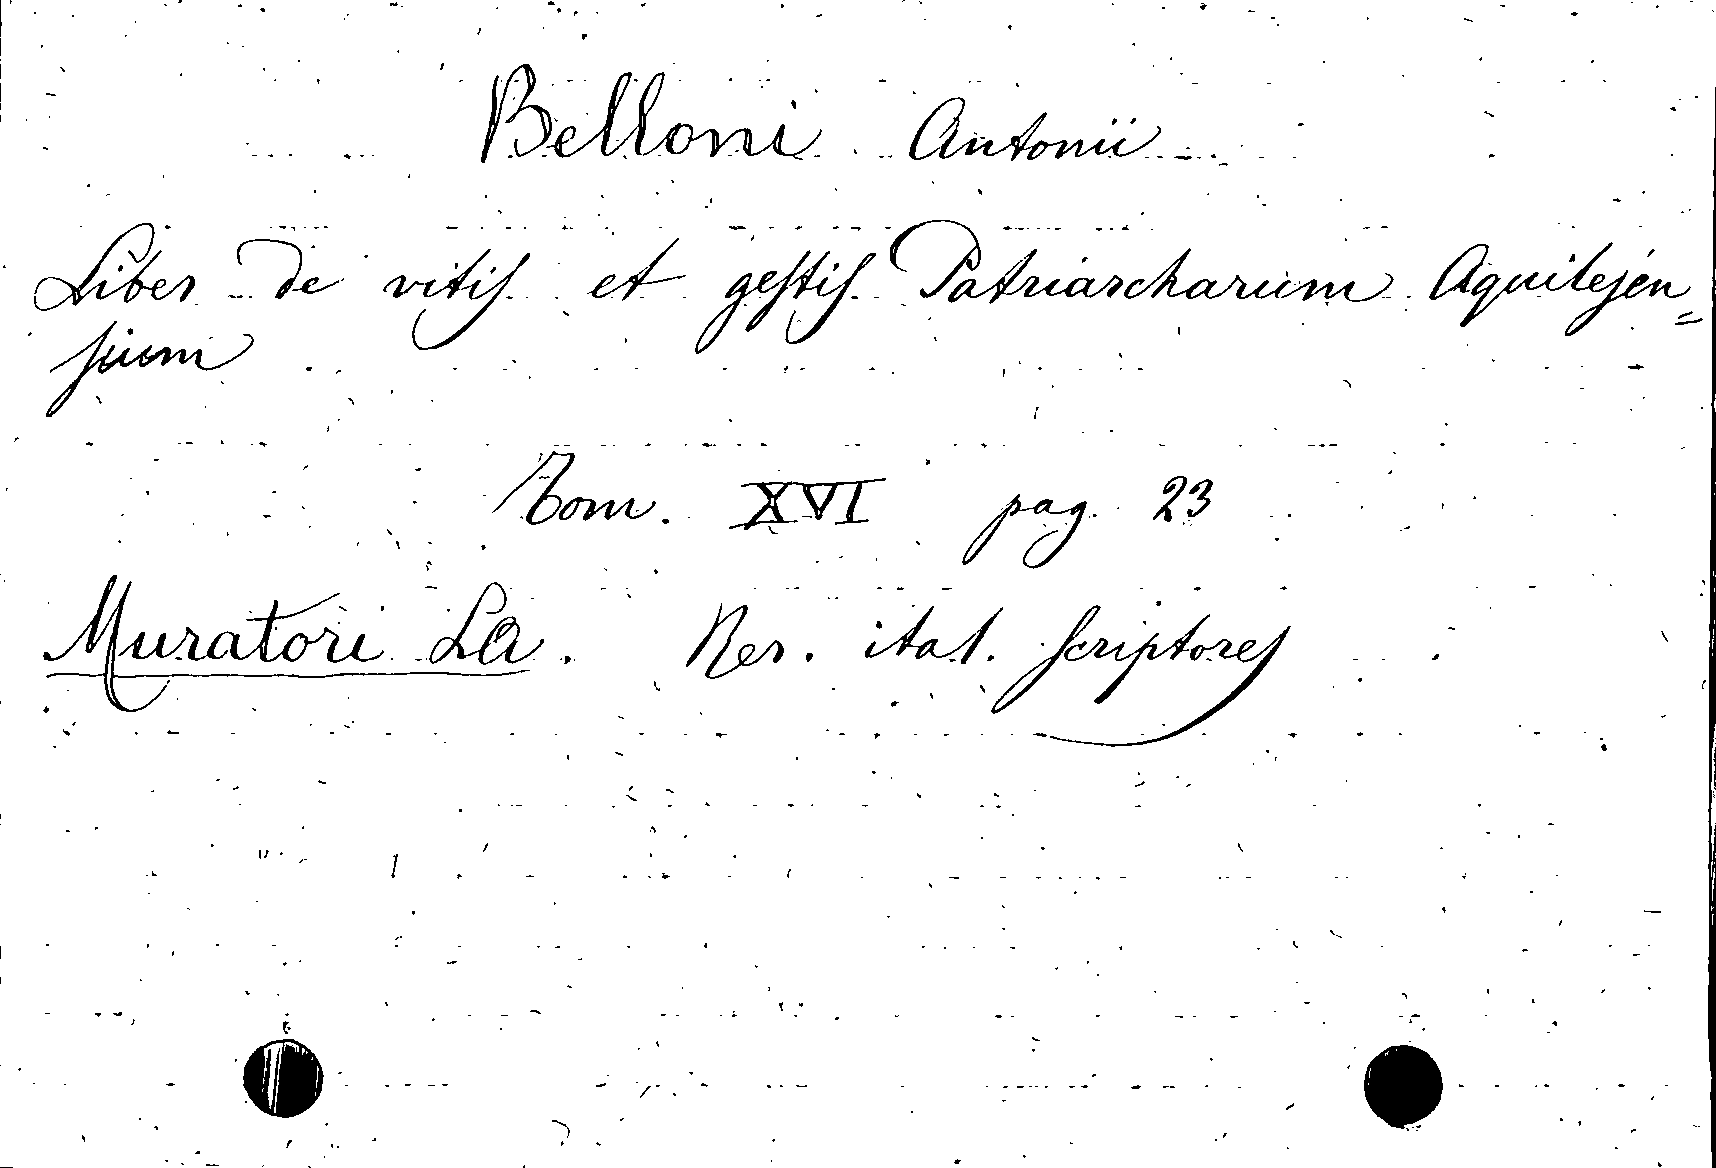 Belloni Antonii
Liber de vitiſ et geſtiſ Patriarcharum Aquilejen=
ſium
Tom. XVI pag. 23
Muratori LA. Rer. ital. ſcriptoreſ